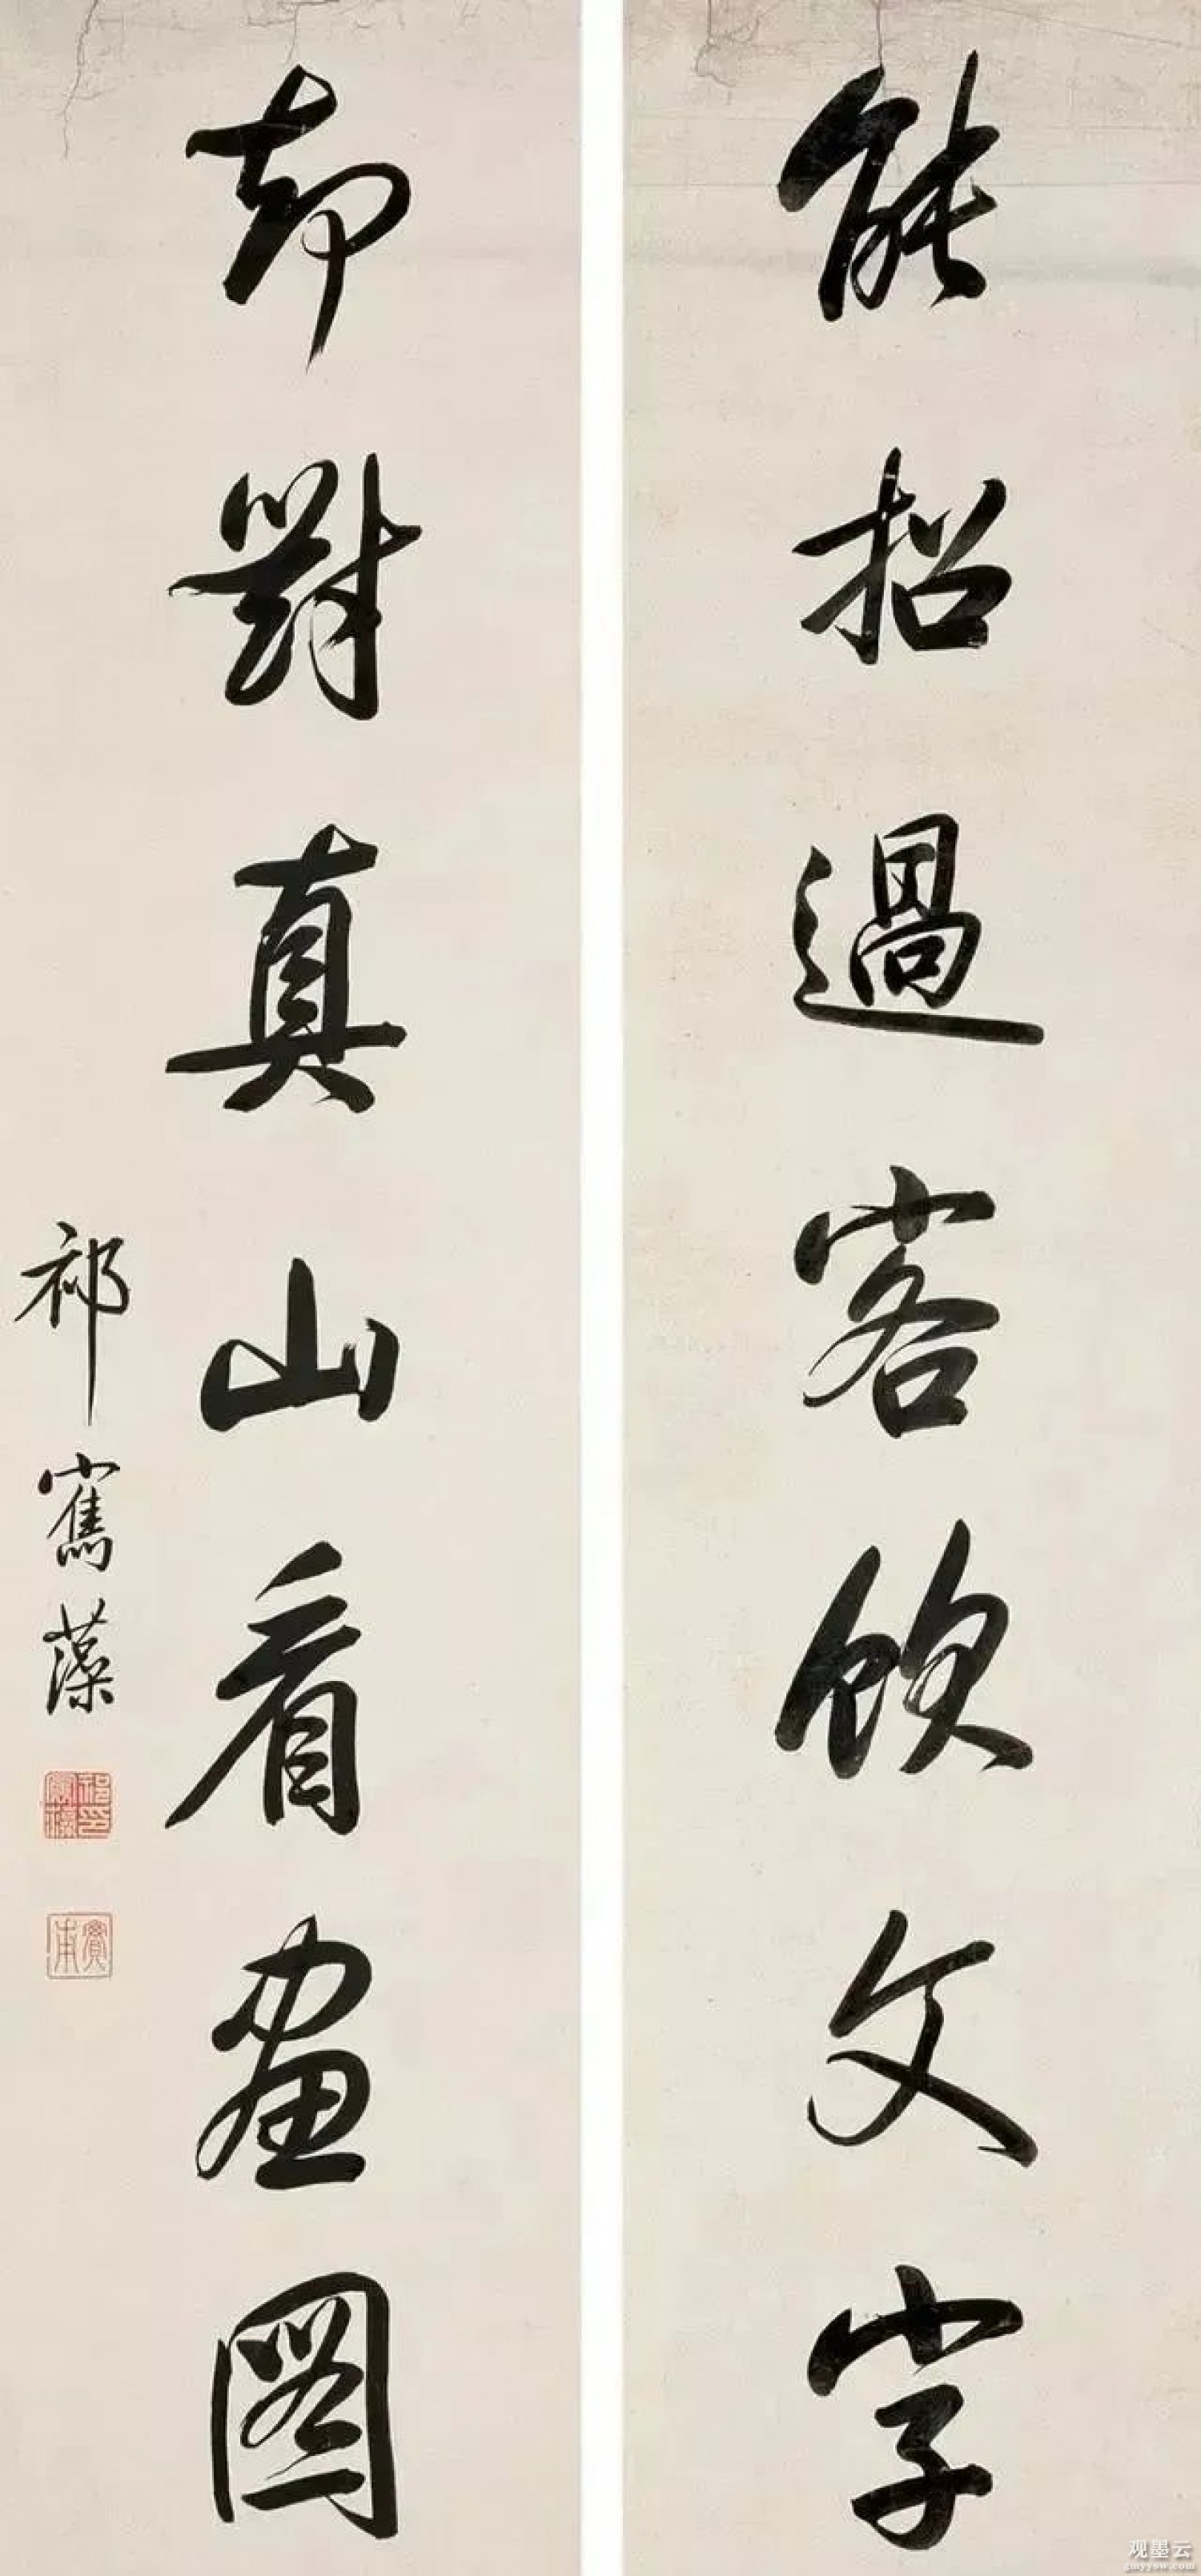 能招過客飲文字
却對真山看畫圖
祁寯藻
祁寯藻印
實甫
观墨云
gmyysw.com